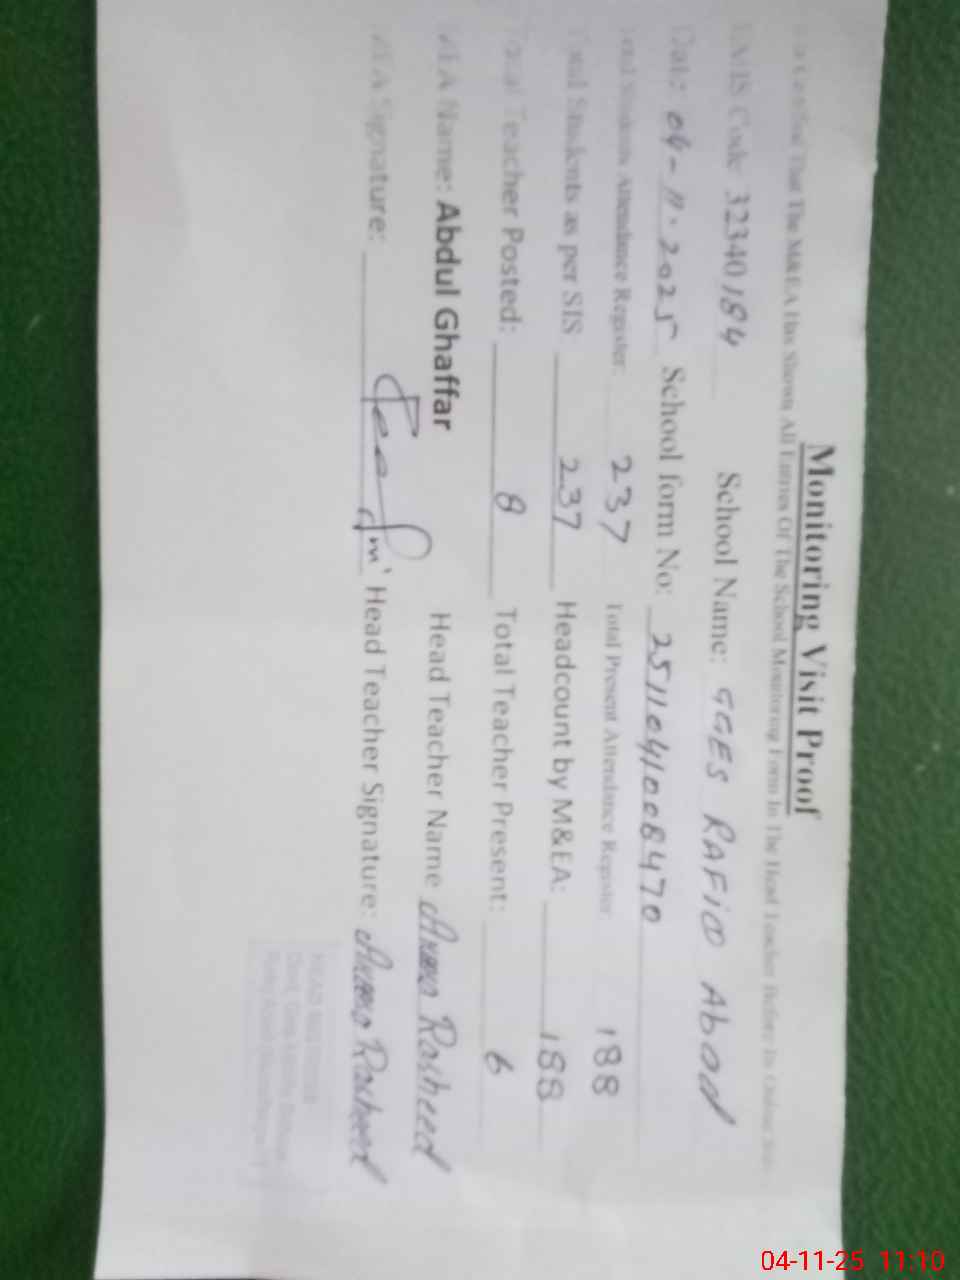 Monitoring Visit Proof
That The M&EA Has Shown All Entries Of The School Monitoring Form In The Head Teacher Before Its Online
EMIS Code 32340184 School Name: GGES RAFiQ Abad
Date 04-11-2025 School form No: 2511041008470
Total Students Attendance Register: 237 Total Present Attendance Register 188
Total Students as per SIS 237 Headcount by M&EA: 188
Total Teacher Posted: 8 Total Teacher Present: 6
MEA Name: Abdul Ghaffar Head Teacher Name Rasheed
MEA Signature: Head Teacher Signature: Rasheed
04-11-25 11:10